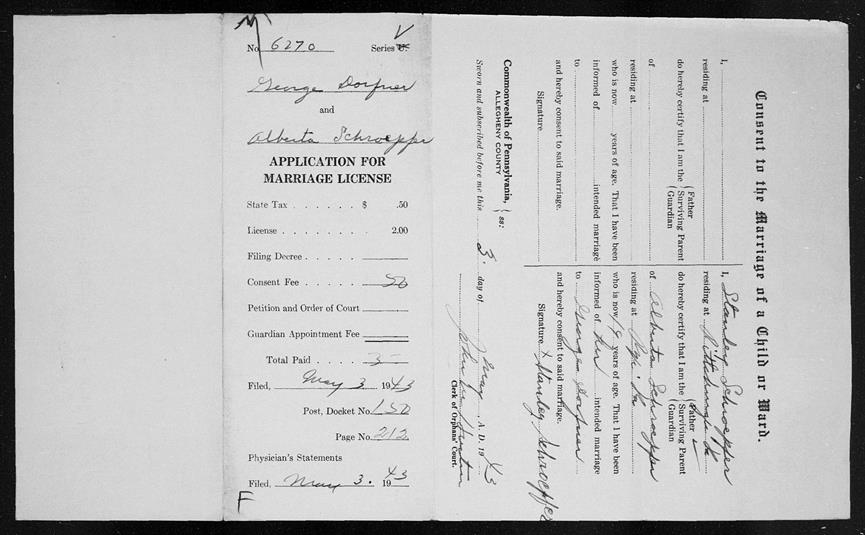 No. 6270 Series C. V
George Dorfner
and
Alberta Schroepper
APPLICATION FOR
MARRIAGE LICENSE
State Tax . . . . . . . $ .50
License . . . . . . . . 2.00
Filing Decree
Consent Fee 50
Petition and Order of Court
Guardian Appointment Fee
Total Paid . . . . . 3
Filed, May 3 1943
Post, Docket No. 150
Page No. 212
Physician's Statements
Filed, May 3. 1943
F
Consent to the Marriage of a Child or Ward.
I,
residing at
do hereby certify that I am the { Father
Surviving Parent
Guardian
of
residing at
who is now years of age. That I have been
informed of intended marriage
to
and hereby consent to said marriage.
Signature
I, Stanley Schroepper
residing at Pittsburgh Pa
do hereby certify that I am the { Father
Surviving Parent
Guardian
of Alberta Schroepper
residing at Pgh. Pa
who is now 19 years of age. That I have been
informed of her intended marriage
to George Dorfner
and hereby consent to said marriage.
Signature x Stanley Schroepper
Commonwealth of Pennsylvania, } ss:
ALLEGHENY COUNTY
Sworn and subscribed before me this 3. day of May A. D. 1943
John
Clerk of Orphans' Court.